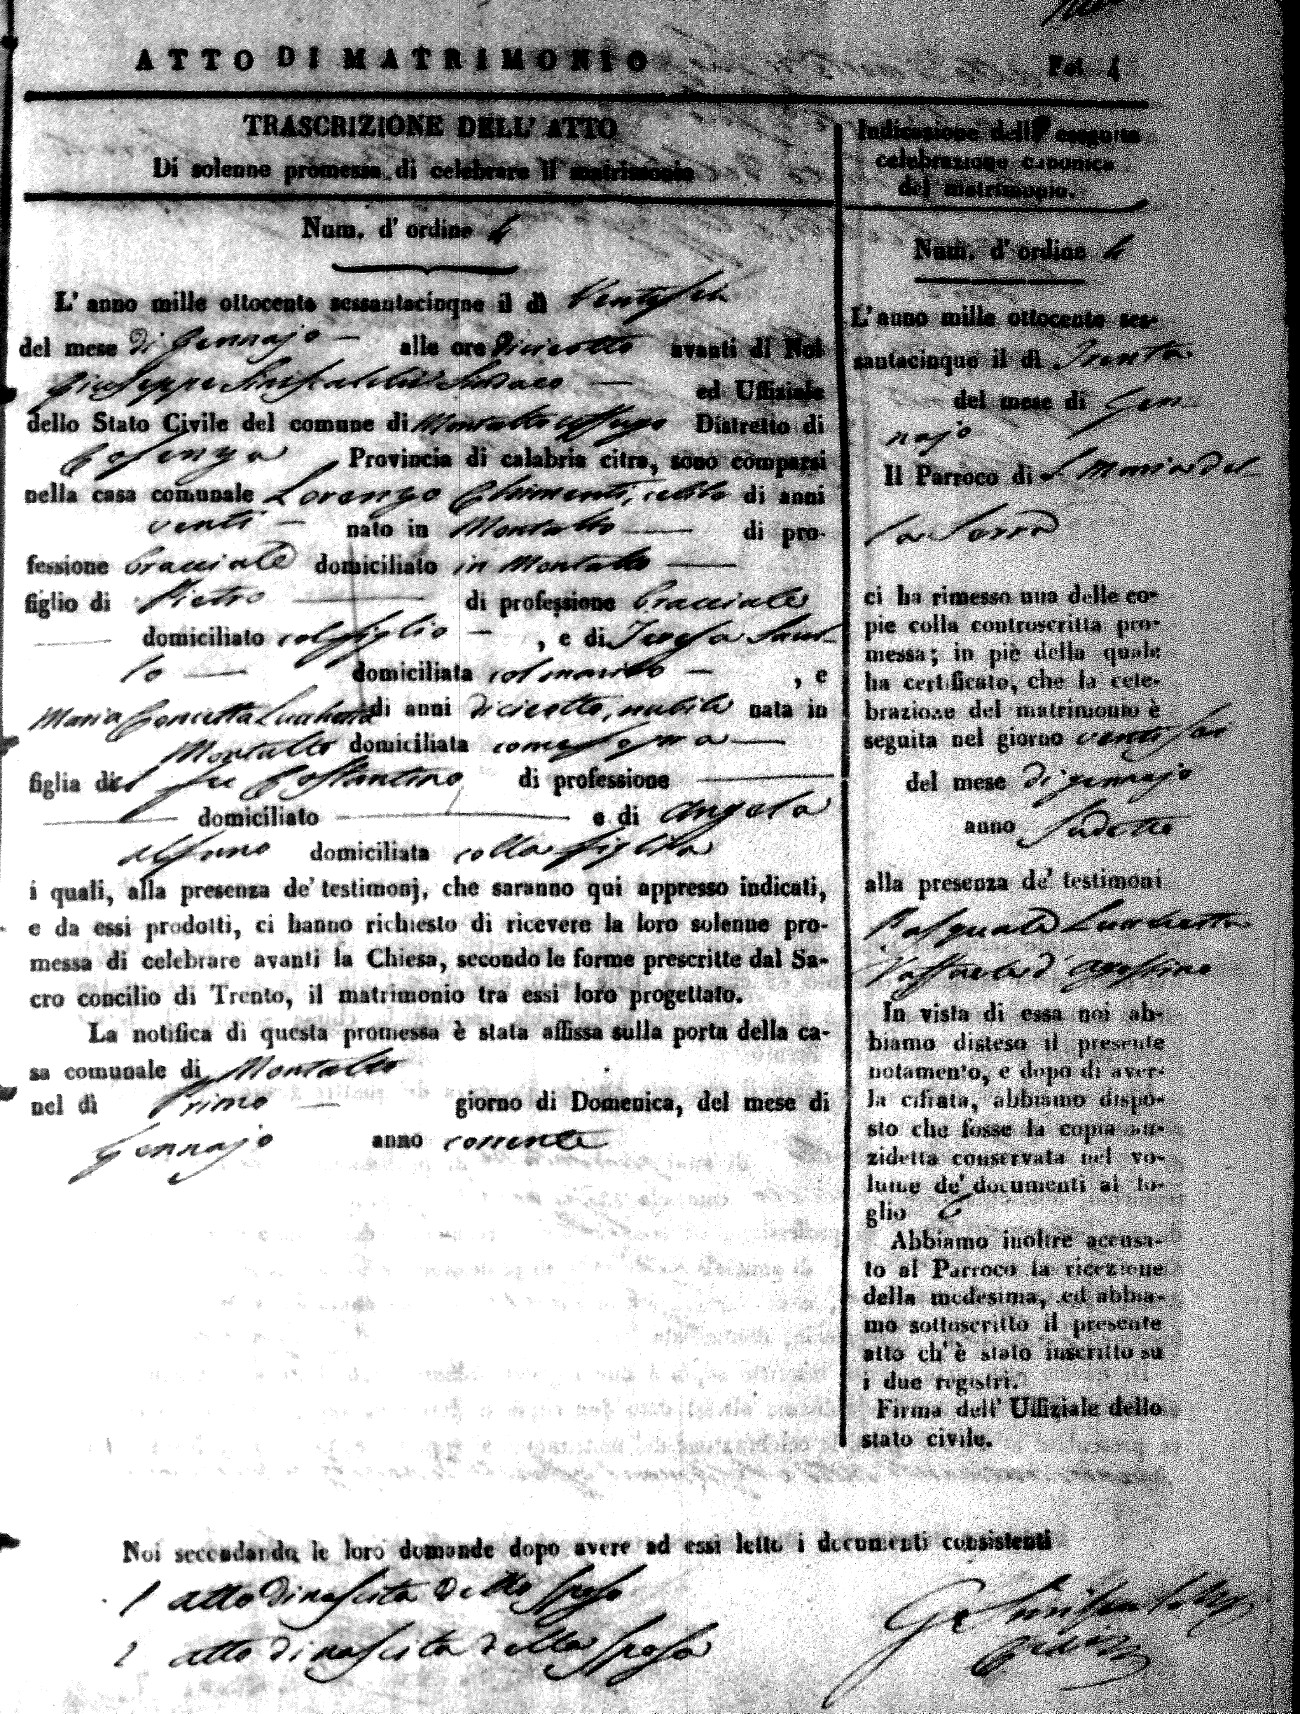 ATTO DI MATRIMONIO
Fol. 4
TRASCRIZIONE DELL' ATTO
Di solenne promessa di celebrare il matrimonio
Num. d' ordine 4
L' anno mille ottocento sessantacinqne il dì Ventisei
del mese di Gennajo — alle ore diciotto avanti di Noi
Giuseppe Sindaco — ed Uffiziale
dello Stato Civile del comune di Montalto Uffugo Distretto di
Cosenza Provincia di calabria citra, sono comparsi
nella casa comunale Lorenzo Chimenti, celibe di anni
venti — nato in Montalto — di pro-
fessione bracciale domiciliato in Montalto —
figlio di Pietro — di professione bracciale
— domiciliato col figlio — , e di Teresa Sant-
lo — domiciliata col marito — , e
Maria Concetta Lucchetta di anni diciotto, nubile nata in
Montalto domiciliata come sopra —
figlia del fu Costantino di professione —
— domiciliato — e di Angela
Alfano domiciliata colla figlia
i quali, alla presenza de' testimonj, che saranno qui appresso indicati,
e da essi prodotti, ci hanno richiesto di ricevere la loro solenne pro-
messa di celebrare avanti la Chiesa, secondo le forme prescritte dal Sa-
cro concilio di Trento, il matrimonio tra essi loro progettato.
La notifica di questa promessa è stata affissa sulla porta della ca-
sa comunale di Montalto
nel dì Primo — giorno di Domenica, del mese di
Gennajo anno corrente
Indicazione della eseguita
celebrazione canonica
del matrimonio.
Num. d' ordine 4
L' anno mille ottocento ses-
santacinque il dì Trenta
del mese di Gen-
najo
Il Parroco di S. Maria del-
la Serra
ci ha rimesso una delle co-
pie colla controscritta pro-
messa; in piè della quale
ha certificato, che la cele-
brazione del matrimonio è
seguita nel giorno ventisei
del mese di gennajo
anno sudetto
alla presenza de' testimoni
Pasquale Lucchetta
Raffaele d' Agostino
In vista di essa noi ab-
biamo disteso il presente
notamento, e dopo di aver-
la cifrata, abbiamo dispo-
sto che fosse la copia an-
zidetta conservata nel vo-
lume de' documenti al fo-
glio 6
Abbiamo inoltre accusa-
to al Parroco la ricezione
della medesima, ed abbia-
mo sottoscritto il presente
atto ch' è stato inscritto su
i due registri.
Firma dell' Uffiziale dello
stato civile.
Noi secondando le loro domande dopo avere ad essi letto i documenti consistenti
1 atto di nascita dello sposo
2 atto di nascita della sposa